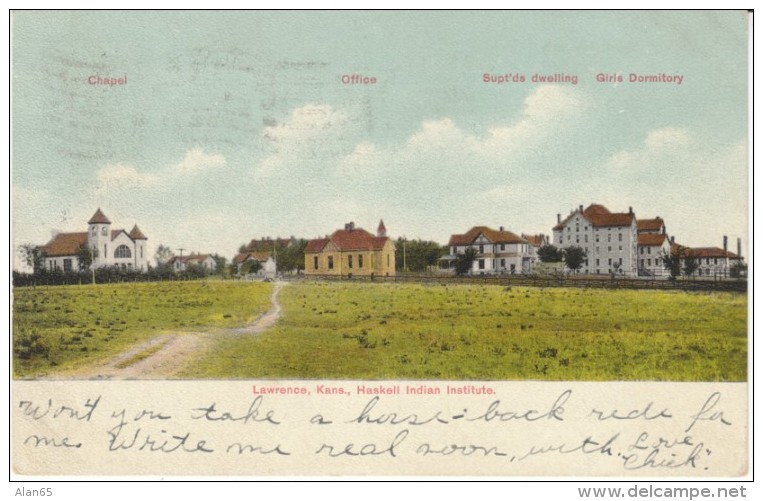 Chapel Office Supt'ds dwelling Girls Dormitory
Lawrence, Kans., Haskell Indian Institute.
Won't you take a horse-back ride for
me. Write me real soon, with. Love
"Chick".
Alan65
http://www.delcampe.net